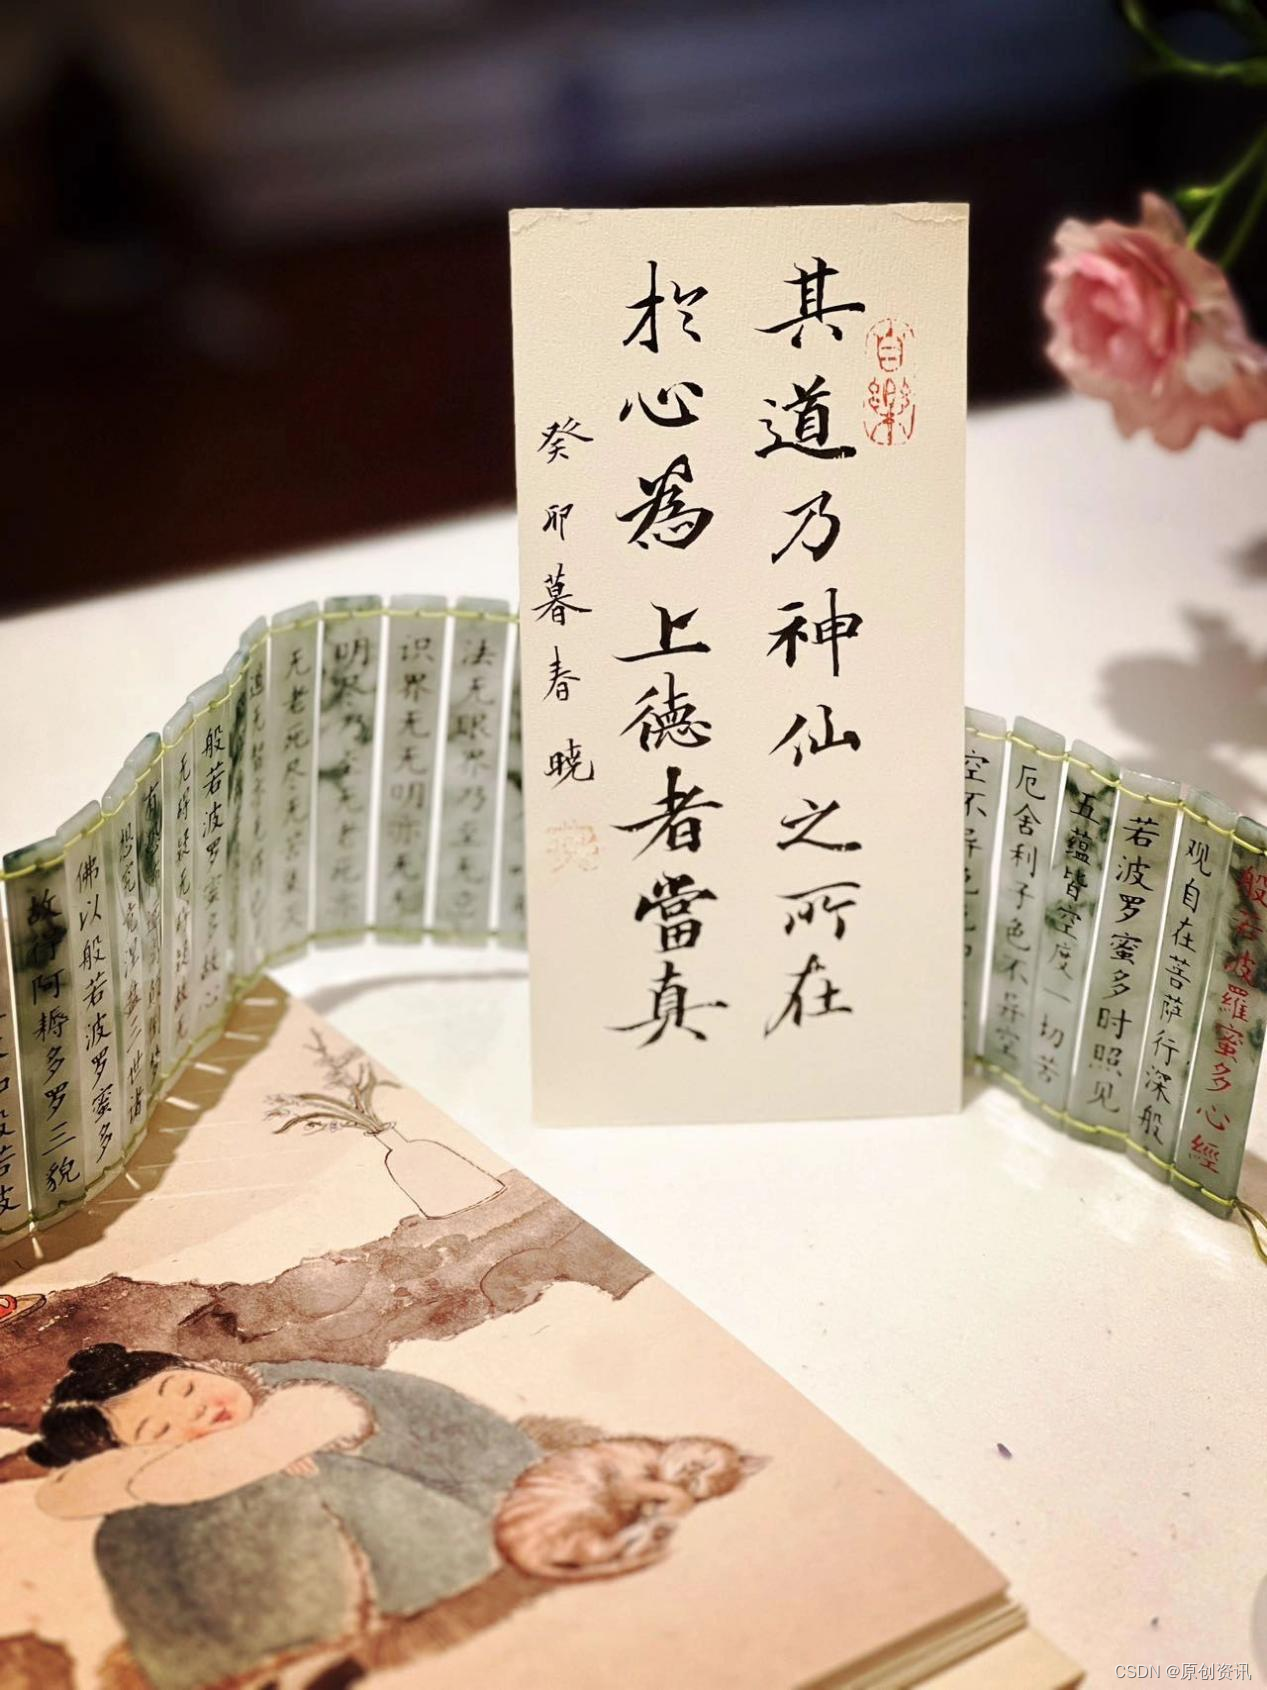 其道乃神仙之所在
於心為上德者當真
癸卯暮春晓
般若波羅蜜多心經
观自在菩萨行深般
若波罗蜜多时照见
五蕴皆空度一切苦
厄舍利子色不异空
法无眼界乃至无意
识界无无明亦无无
明尽乃至无老死亦
无老死尽无苦集灭
般若波罗蜜多故心
佛以般若波罗蜜多
故得阿耨多罗三貌
CSDN @原创资讯